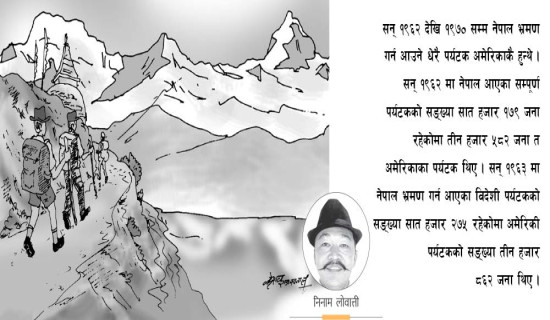 सन् १९६२ देखि १९७० सम्म नेपाल भ्रमण
गर्न आउने धेरै पर्यटक अमेरिकाकै हुन्थे ।
सन् १९६२ मा नेपाल आएका सम्पूर्ण
पर्यटकको सङ्ख्या सात हजार १७९ जना
रहेकोमा तीन हजार ५८२ जना त
अमेरिकाका पर्यटक थिए । सन् १९६३ मा
नेपाल भ्रमण गर्न आएका विदेशी पर्यटकको
सङ्ख्या सात हजार २७५ रहेकोमा अमेरिकी
पर्यटकको सङ्ख्या तीन हजार
८६२ जना थिए ।
निनाम लोवात्ती